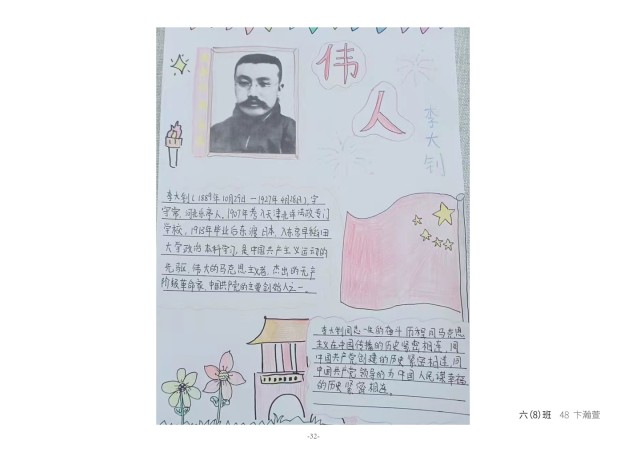 伟
人
李大钊
李大钊(1889年10月29日—1927年4月28日),字
守常,河北乐亭人,1907年考入天津北洋法政专门
学校,1913年毕业后东渡日本,入东京早稻田
大学政治本科学习,是中国共产主义运动的
先驱,伟大的马克思主义者,杰出的无产
阶级革命家,中国共产党的主要创始人之一。
李大钊同志一生的奋斗历程同马克思
主义在中国传播的历史紧密相连,同
中国共产党创建的历史紧密相连,同
中国共产党领导的为中国人民谋幸福
的历史紧密相连。
六(8)班 48 卞瀚萱
-32-